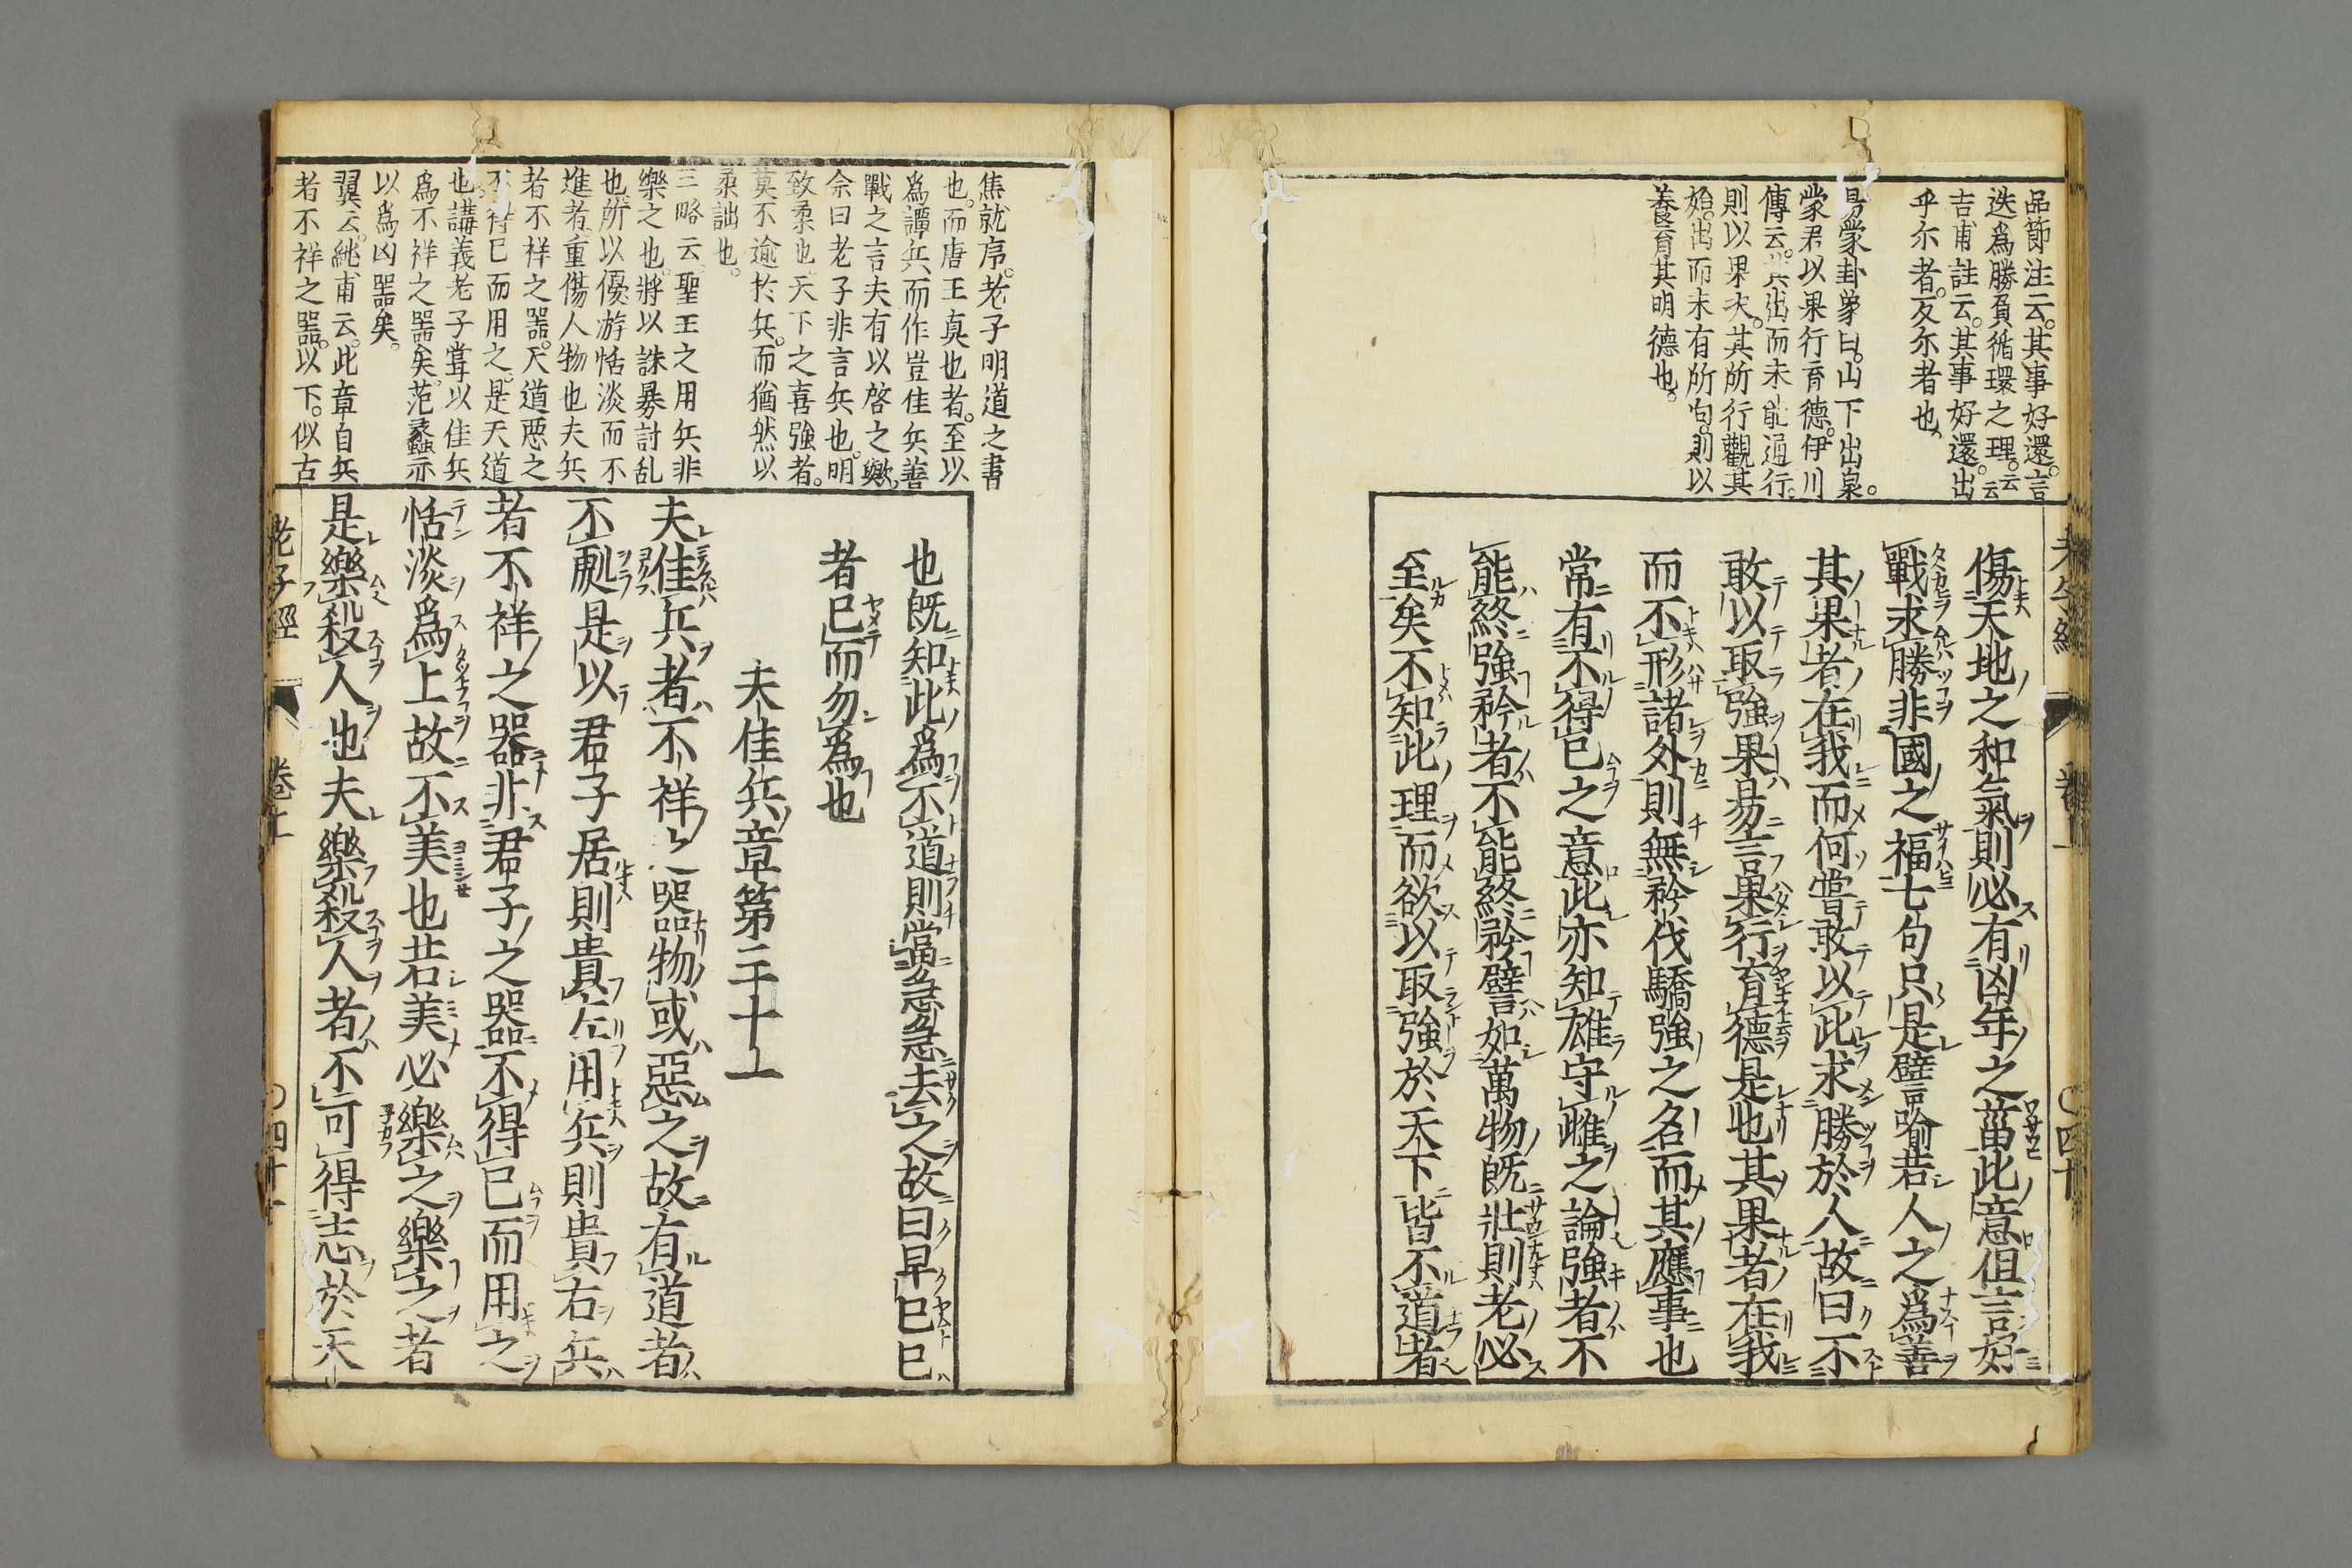 品節注云。其事好還。言
迭爲勝負循環之理。云云
吉甫註云。其事好還。出
乎尔者。反尔者也。
易蒙卦象曰。山下出泉。
蒙君以果行育德。伊川
傳云。其出而未能通行。
則以果决。其所行觀其
始。出而未有所向。則以
養育其明德也。
傷天地之和氣則必有凶年之菑此意但言好
戰求勝非國之福七句只是譬喻若人之爲善
其果者在我而何嘗敢以此求勝於人故曰不
敢以取強果易言果行育德是也其果者在我
而不形諸外則無矜伐驕強之名而其應事也
常有不得已之意此亦知雄守雌之論強者不
能終強矜者不能終矜譬如萬物既壯則老必
至矣不知此理而欲以取強於天下皆不道者
老子經
卷上
〇四十
焦就序。老子明道之書
也。而唐王真也者。至以
爲譚兵而作豈佳兵善
戰之言夫有以啓之歟。
余曰老子非言兵也。明
致柔也。天下之喜強者。
莫不逾於兵。而猶然以
柔詘也。
三略云。聖王之用兵非
樂之也。將以誅暴討乱
也。所以優游恬淡而不
進者。重傷人物也夫兵
者不祥之器。天道惡之
不得已而用之。是天道
也。講義老子嘗以佳兵
爲不祥之器矣。范蠡亦
以爲凶器矣。
翼云。純甫云。此章自兵
者不祥之器。以下。似古
也既知此爲不道則當急急去之故曰早已已
者已而勿爲也
夫佳兵章第三十一
夫佳兵者不祥之器物或惡之故有道者
不處是以君子居則貴左用兵則貴右兵
者不祥之器非君子之器不得已而用之
恬淡爲上故不美也若美必樂之樂之者
是樂殺人也夫樂殺人者不可得志於天
老子經
卷上
〇四十一